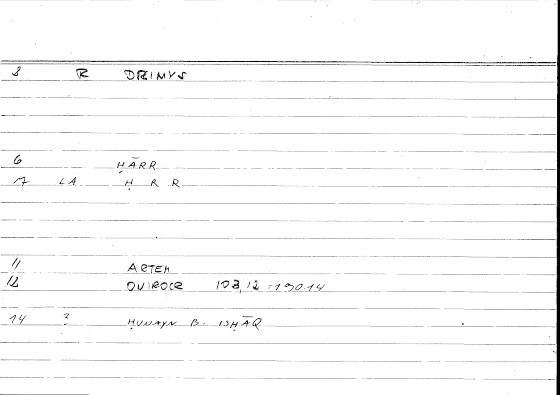 8 R DRIMYS
6 ḤĀRR
17 LA Ḥ R R
11 ARTEM
12 OVIROCR 108,12 =190.14
14 ? ḤUNAYN B. ISḤĀQ